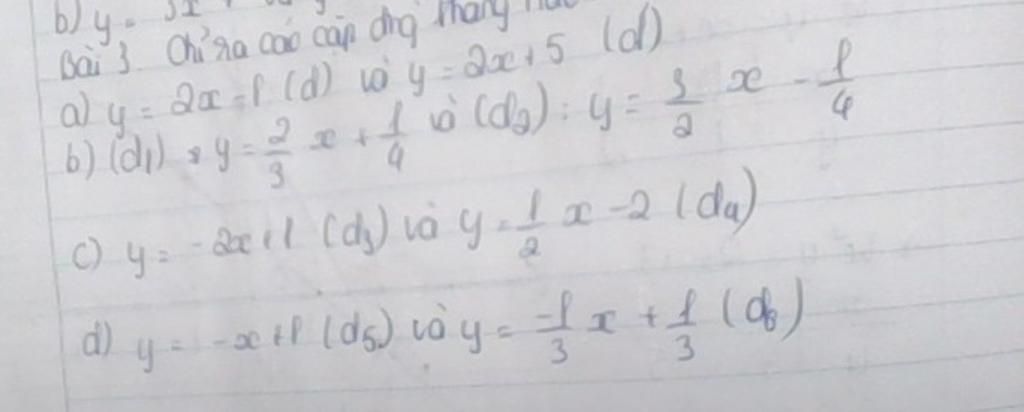 b) y =
Bài 3 Chỉ ra các cặp đng thẳng
a) y = 2x - 1 (d) và y = 2x + 5 (d)
b) (d1) : y = 2/3 x + 1/4 và (d2) : y = 3/2 x - 1/4
c) y = -2x + 1 (d3) và y = 1/2 x - 2 (d4)
d) y = -x + 1 (d5) và y = -1/3 x + 1/3 (d6)